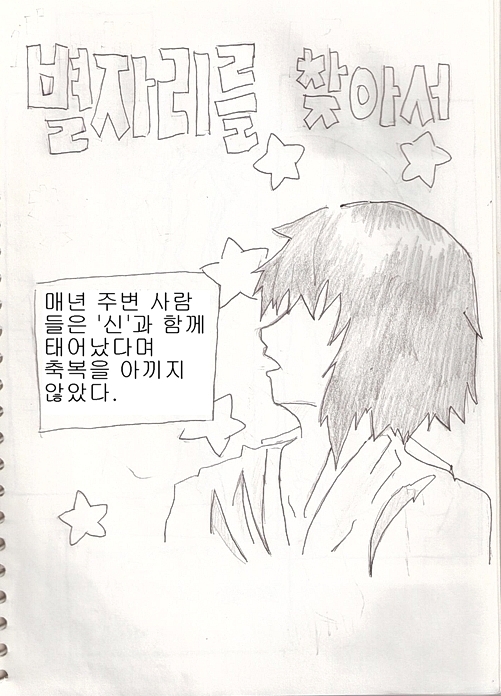 별자리를 찾아서
매년 주변 사람
들은 '신'과 함께
태어났다며
축복을 아끼지
않았다.